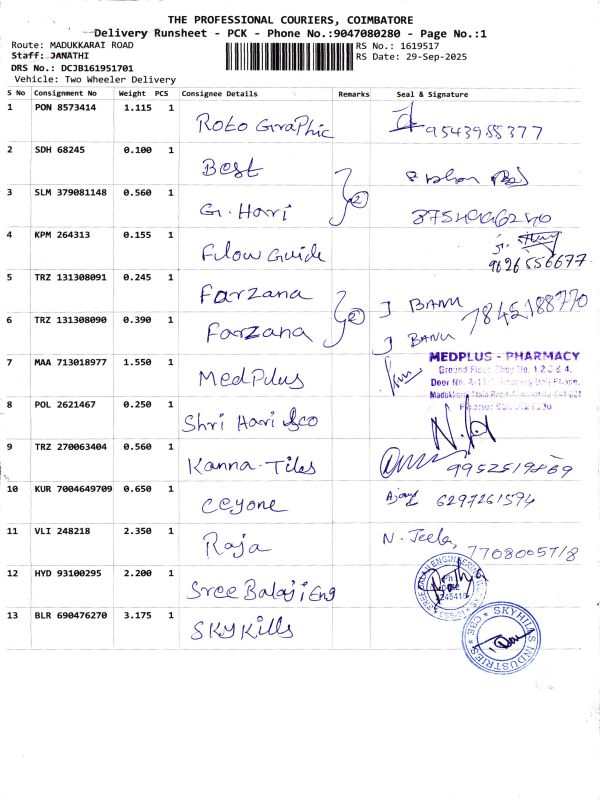 THE PROFESSIONAL COURIERS, COIMBATORE
Delivery Runsheet - PCK - Phone No.:9047080280 - Page No.:1
Route: MADUKKARAI ROAD RS No.: 1619517
Staff: JANATHI RS Date: 29-Sep-2025
DRS No.: DCJB161951701
Vehicle: Two Wheeler Delivery
S No Consignment No Weight PCS Consignee Details Remarks Seal & Signature
1 PON 8573414 1.115 1 Roto Graphic 9543988377
2 SDH 68245 0.100 1 Best
3 SLM 379081148 0.560 1 G. Hari 2
4 KPM 264313 0.155 1 Flow Guide 9626556677
5 TRZ 131308091 0.245 1 Farzana J BANU 7845188770
6 TRZ 131308090 0.390 1 Farzana 2 J BANU
7 MAA 713018977 1.550 1 MedPlus
MEDPLUS - PHARMACY
Ground Floor, Shop No. 1,2,3 & 4,
8 POL 2621467 0.250 1 Shri Hari &co
9 TRZ 270063404 0.560 1 Kanna-Tiles
10 KUR 7004649709 0.650 1 CCyone Ajay 6297261594
11 VLI 248218 2.350 1 Raja N. Jeela, 7708005718
12 HYD 93100295 2.200 1 Sree Balaji Eng
13 BLR 690476270 3.175 1 SKY Kills
SKYHILLS INDUSTRIES
CBE